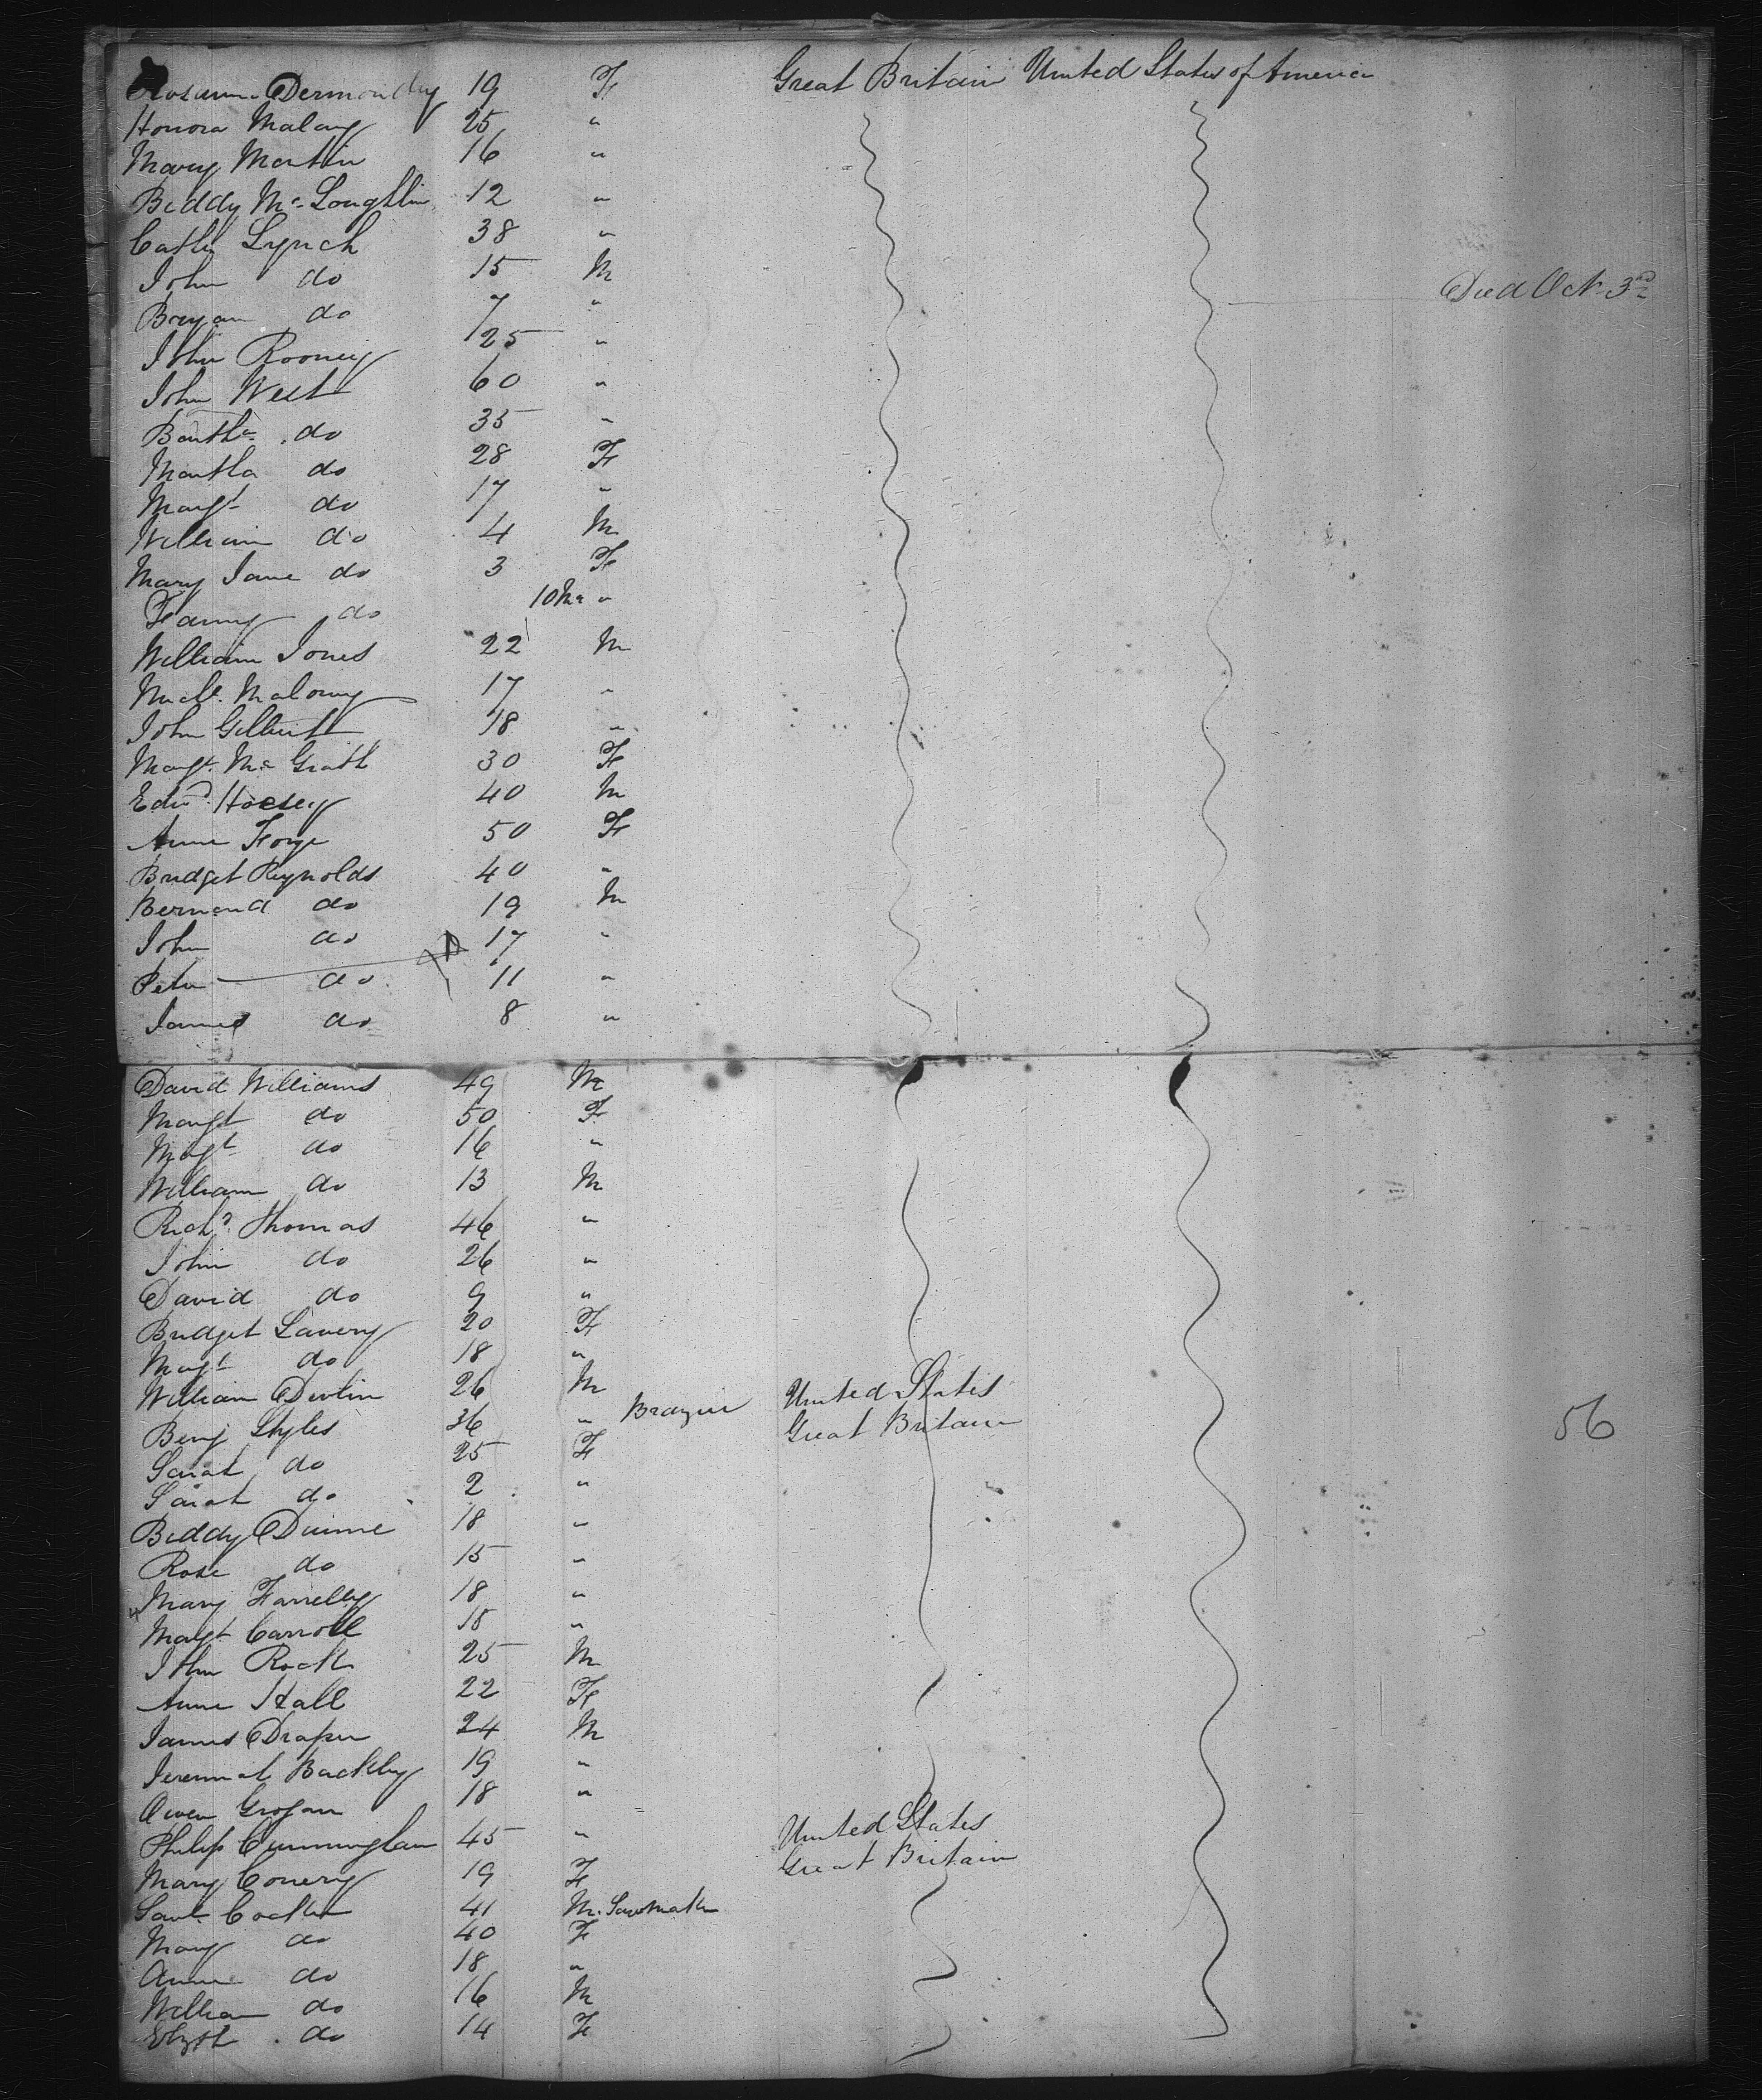 Rosanna Dermondy 19 F Great Britain United States of America
Honora Malany 25 "
Mary Martin 16 "
Biddy Mc Loughlin 12 "
Cathe Lynch 38 "
John do 15 M
Bryan do 7 " Died Oct 3rd
John Rooney 25 "
John West 60 "
Barthw do 35 "
Martha do 28 F
Margt do 17 "
William do 4 M
Mary Jane do 3 F
Fanny do 10 Ms "
William Jones 22 M
Michl. Malowny 17 "
John Gilbert 18 "
Margt. Mc Grath 30 F
Edwd. Horsey 40 M
Anne Forge 50 F
Bridget Reynolds 40 "
Bernard do 19 M
John do 17 "
Peter do 11 "
James do 8 "
David Williams 49 M
Margt do 50 F
Margt do 16 "
William do 13 M
Richd. Thomas 46 "
John do 26 "
David do 9 "
Bridget Lavery 20 F
Margt do 18 "
William Devlin 26 M United States
Benj Styles 36 " Brazier Great Britain 56
Sarah do 25 F
Sarah do 2 "
Biddy Dunne 18 "
Rose do 15 "
Mary Farrelly 18 "
Margt Carroll 18 "
John Rock 25 M
Anne Hall 22 F
James Draper 24 M
Jeremiah Buckley 19 "
Owen Grogan 18 "
Philip Cunningham 45 " United States
Mary Conery 19 F Great Britain
Saml. Cocker 41 M. Sawmaker
Mary do 40 F
Anne do 18 "
William do 16 M
Elizth do 14 F